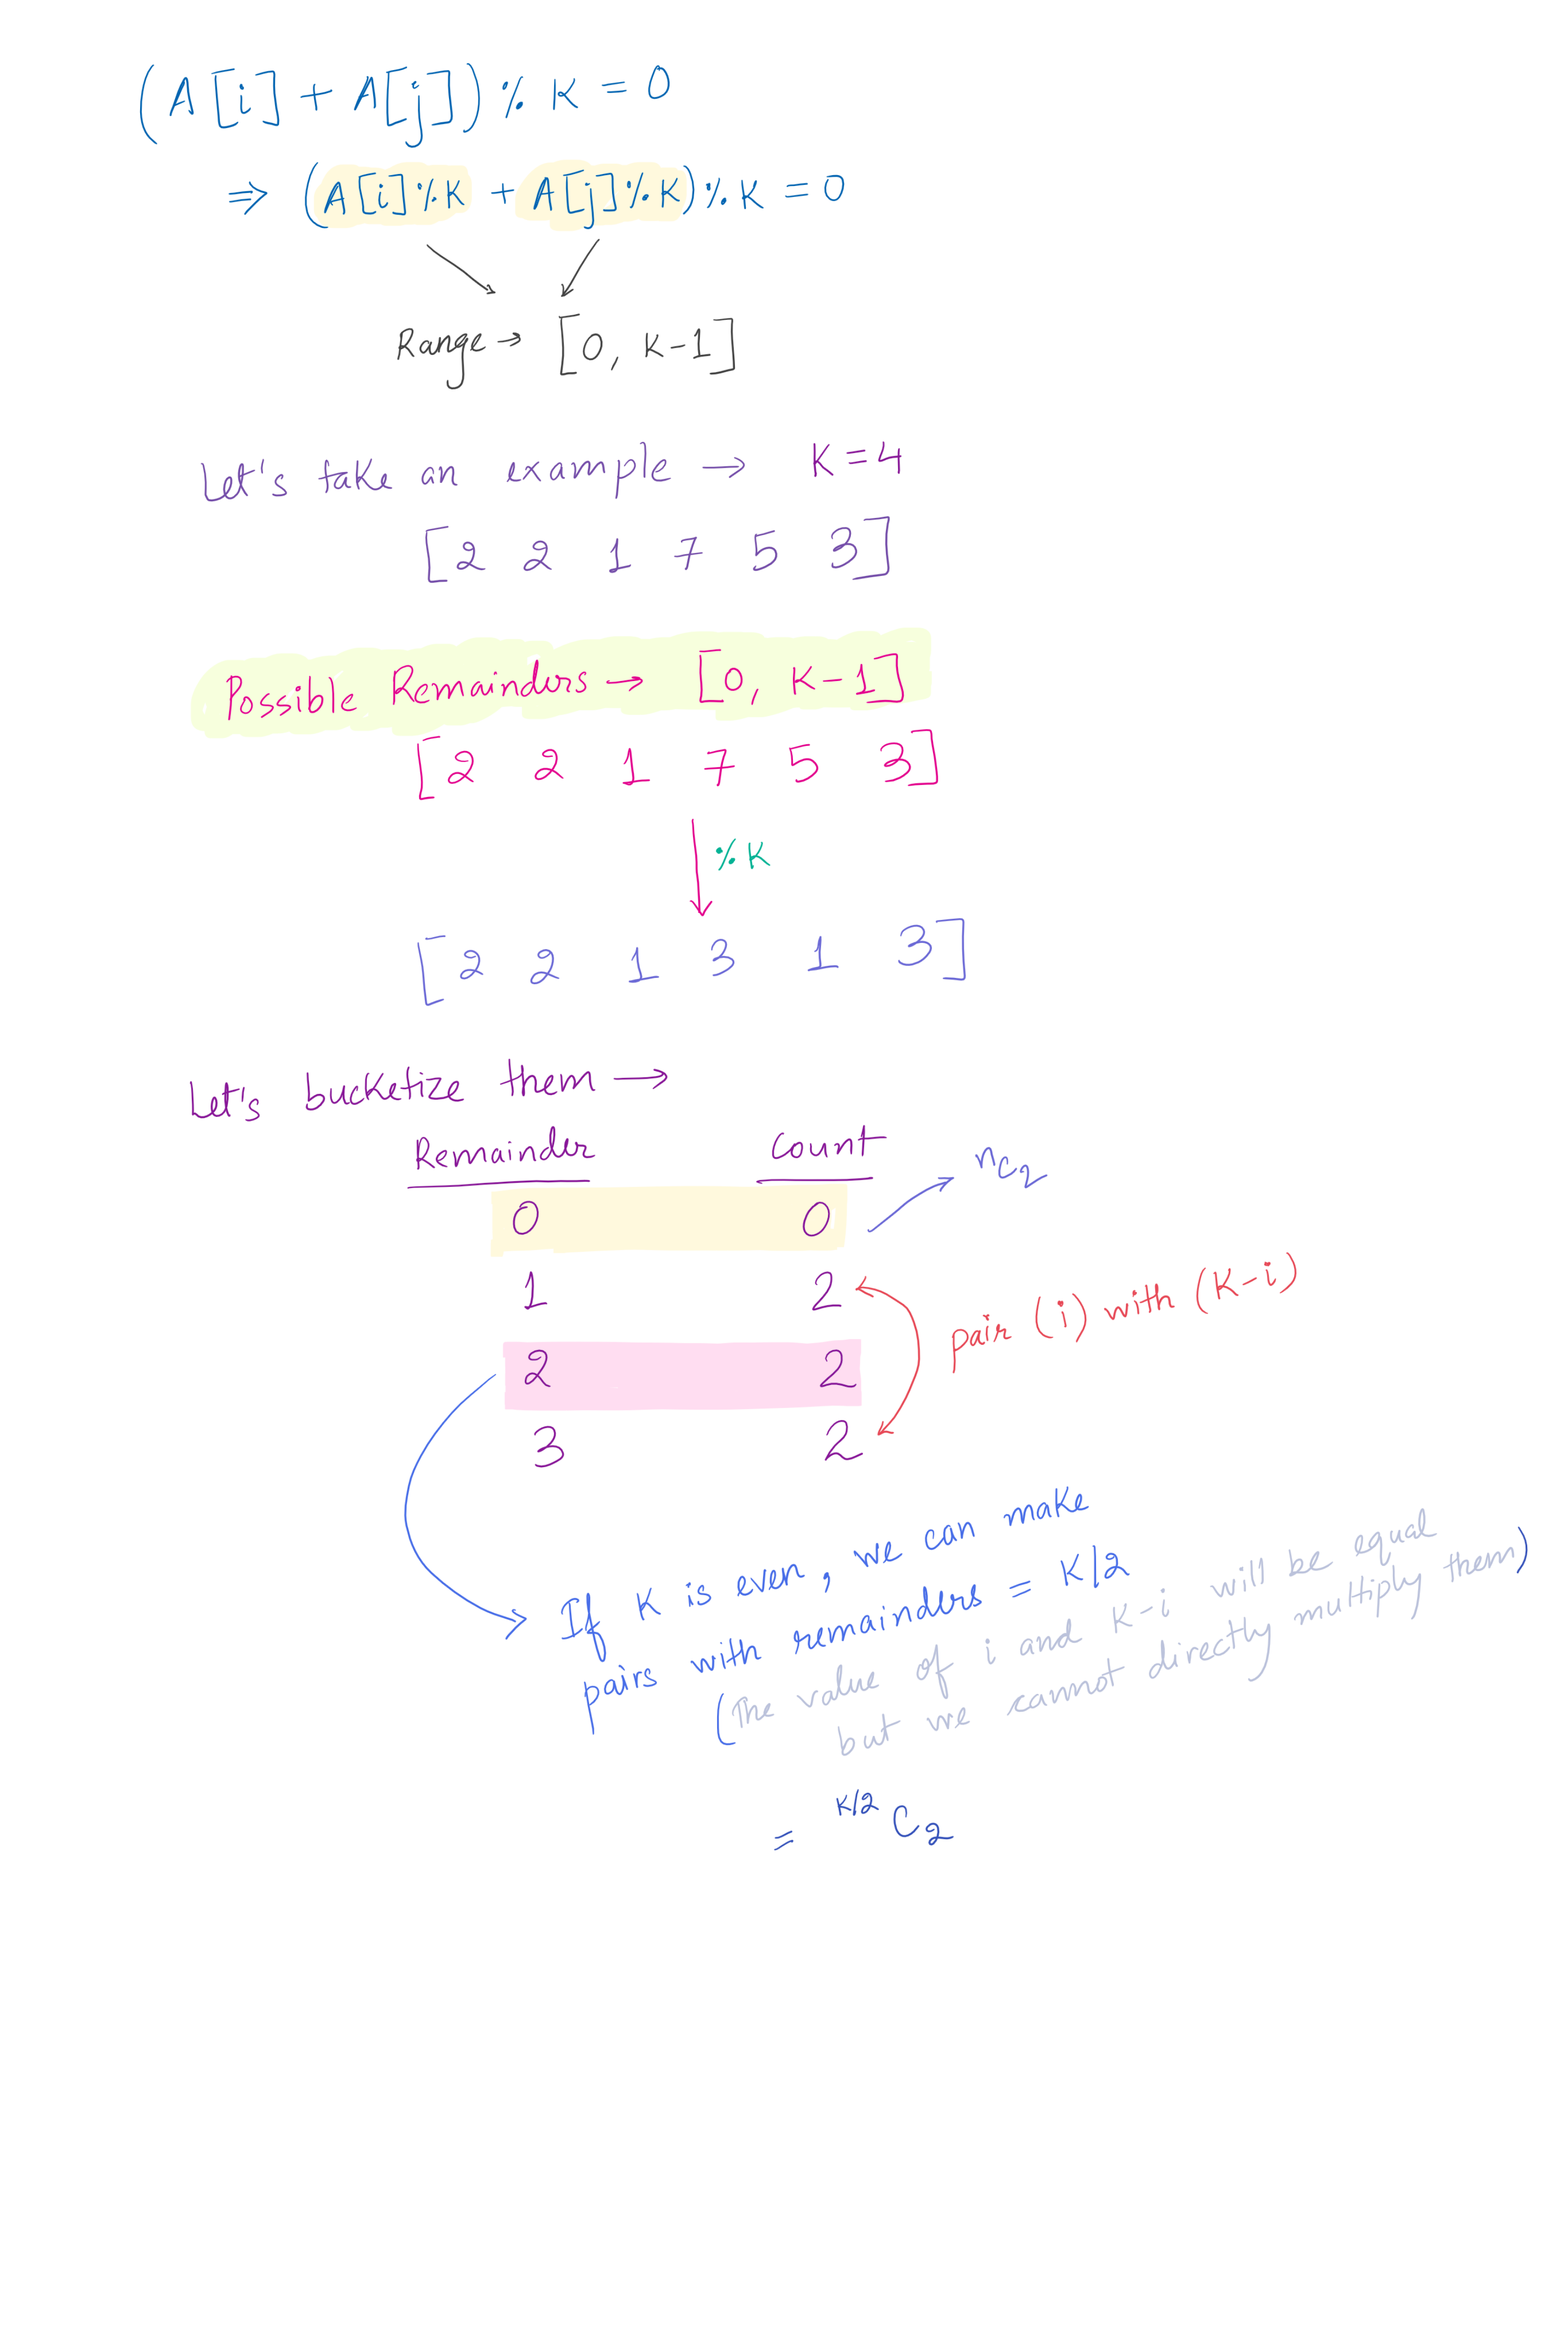 (A[i] + A[j]) % K = 0
⇒ (A[i]%K + A[j]%K)%K = 0
Range → [0, K-1]
Let's take an example → K=4
[2 2 1 7 5 3]
Possible Remainders → [0, K-1]
[2 2 1 7 5 3]
%K
[2 2 1 3 1 3]
Let's bucketize them →
Remainder Count
nC2
0 0
1 2
pair (i) with (K-i)
2 2
3 2
If K is even, we can make
pairs with remainders = K/2
(The value of i and K-i will be equal
but we cannot directly multiply them)
= K/2 C2